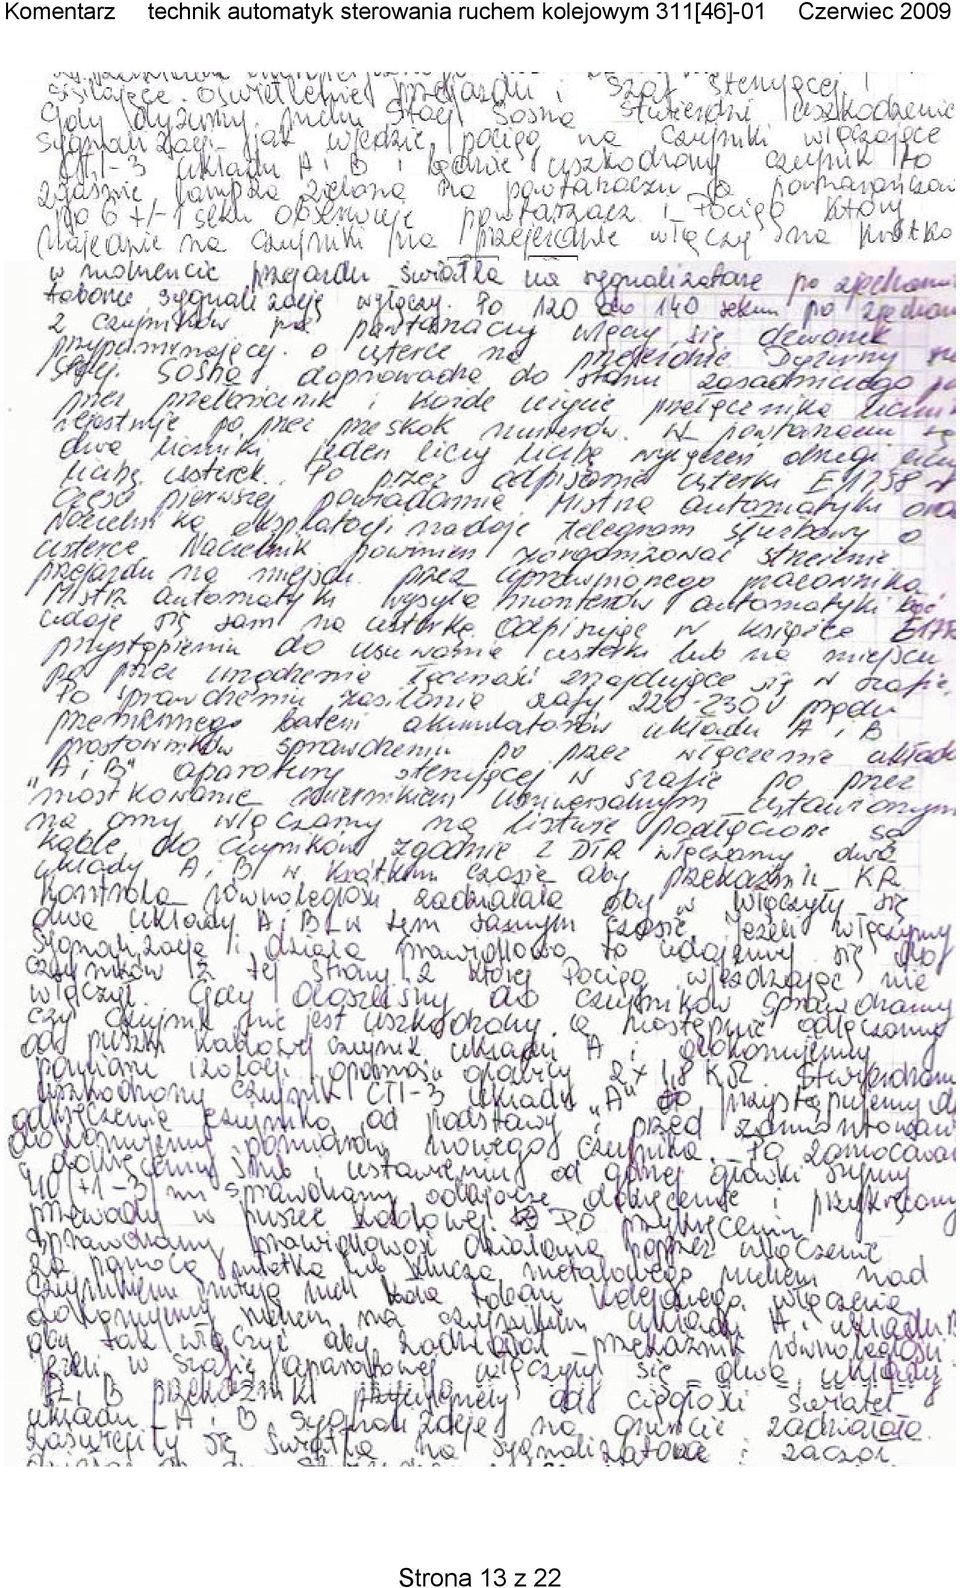 Komentarz technik automatyk sterowania ruchem kolejowym 311[46]-01 Czerwiec 2009
oświetlenie przejazdu i szaf sterującej
Gdy dyżurny ruchu Stacji Sosna stwierdzi uszkodzenie
sygnalizacji - jak wjedzie pociąg na czujniki włączające
CTI-3 układu A i B i będzie uszkodzony czujnik to
zgaśnie lampka zielona na powtarzaczu a pomarańczowa
po 6 +/- 1 sekn obserwuje powtarzacz i Pociąg który
najedzie na czujniki na przejeździe włączy na krótko
w momencie przejazdu światła na sygnalizatorze po zjechaniu
taboru sygnalizację wyłączy. Po 120 do 140 sekun po zjechaniu
2 czujników na powtarzaczu włączy się dzwonek
przypominającej o usterce na przejeździe Dyżurny
Stacji Sosna doprowadza do stanu zasadniczego
przez przełącznik i każde użycie przełącznika
rejestruje po przez przeskok numerów. W powtarzaczu są
dwa liczniki jeden liczy liczbę wyłączeń drugi
liczbę usterek. Po przez odpisanie usterki E1758 w
części pierwszej powiadamia Mistrza automatyki oraz
Naczelnika eksploatacji nadaje telegram służbowy o
usterce Naczelnik powinien zorganizować strzeżenie
przejazdu na miejscu przez uprawnionego pracownika.
Mistrz automatyki wysyła monterów automatyki bądź
udaje się sam na usterkę. Odpisując w książce E1758
przystąpieniu do usuwania usterki lub na miejscu
po przez urządzenia łączności znajdujące się w szafie.
Po sprawdzeniu zasilania szafy 220-230V prądu
przemiennego baterii akumulatorów układu A i B
prostowników sprawdzeniu po przez włączenie układu
"A i B" aparatury sterującej w szafie po przez
mostkowanie miernikiem uniwersalnym ustawionym
na omy włączamy na listwie podłączone są
kable do czujników zgodnie z DTR włączamy dwa
układy A i B w krótkim czasie aby przekaźnik KR
kontrola równoległości zadziałała aby w włączyły się
dwa układy A i B w tym samym czasie. Jeżeli włączymy
sygnalizację i działa prawidłowo to udajemy się do
czujników z tej strony z której Pociąg wjeżdżając nie
włączył. Gdy doszliśmy do czujników sprawdzamy
czy czujnik nie jest uszkodzony a następnie odłączamy
od puszki kablowej czujnik układu A i dokonujemy
pomiaru izolacji, oporności 2 x 1,8 KΩ. Stwierdzamy
uszkodzony czujnik CTI-3 układu "A" to przystępujemy do
odkręcenie czujnika od podstawy przed zamontowaniem
dokonujemy pomiarów nowego czujnika. Po zamocowaniu
i dokręceniu śrub i ustawieniu od górnej główki szyny
40 (+1 -3) mm sprawdzamy dokręcenie i przykręcamy
przewody w puszce kablowej. Po przykręceniu
sprawdzamy prawidłowość działania poprzez włączenie
za pomocą młotka lub klucza metalowego ruchem nad
czujnikiem imitują ruch koła taboru kolejowego włączenia
dokonujemy ruchem na czujnikiem układu A i układu B
aby tak włączyć aby zadziałał przekaźnik równoległości.
Jeżeli w szafie aparatowej włączyły się dwa układy
A i B przekaźniki od ciągłości świateł
układu A i B sygnalizację na gruncie zadziałała
zaświeciły się światła na sygnalizatorze i zaczął
Strona 13 z 22